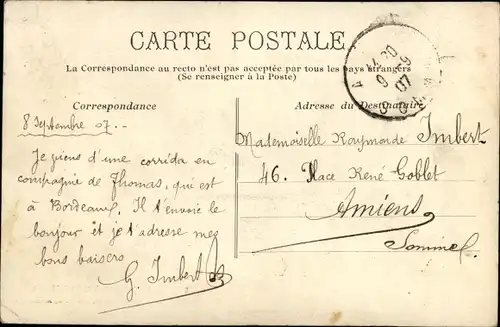 CARTE POSTALE
La Correspondance au recto n'est pas acceptée par tous les pays étrangers
(Se renseigner à la Poste)
Correspondance
Adresse du Destinataire
8 Septembre 07..
Je viens d'une corrida en
compagnie de Thomas, qui est
à Bordeaux. Il t'envoie le
bonjour et je t'adresse mes
bons baisers
G. Imbert
Mademoiselle Raymonde Imbert
46. Place René Goblet
Amiens
Somme